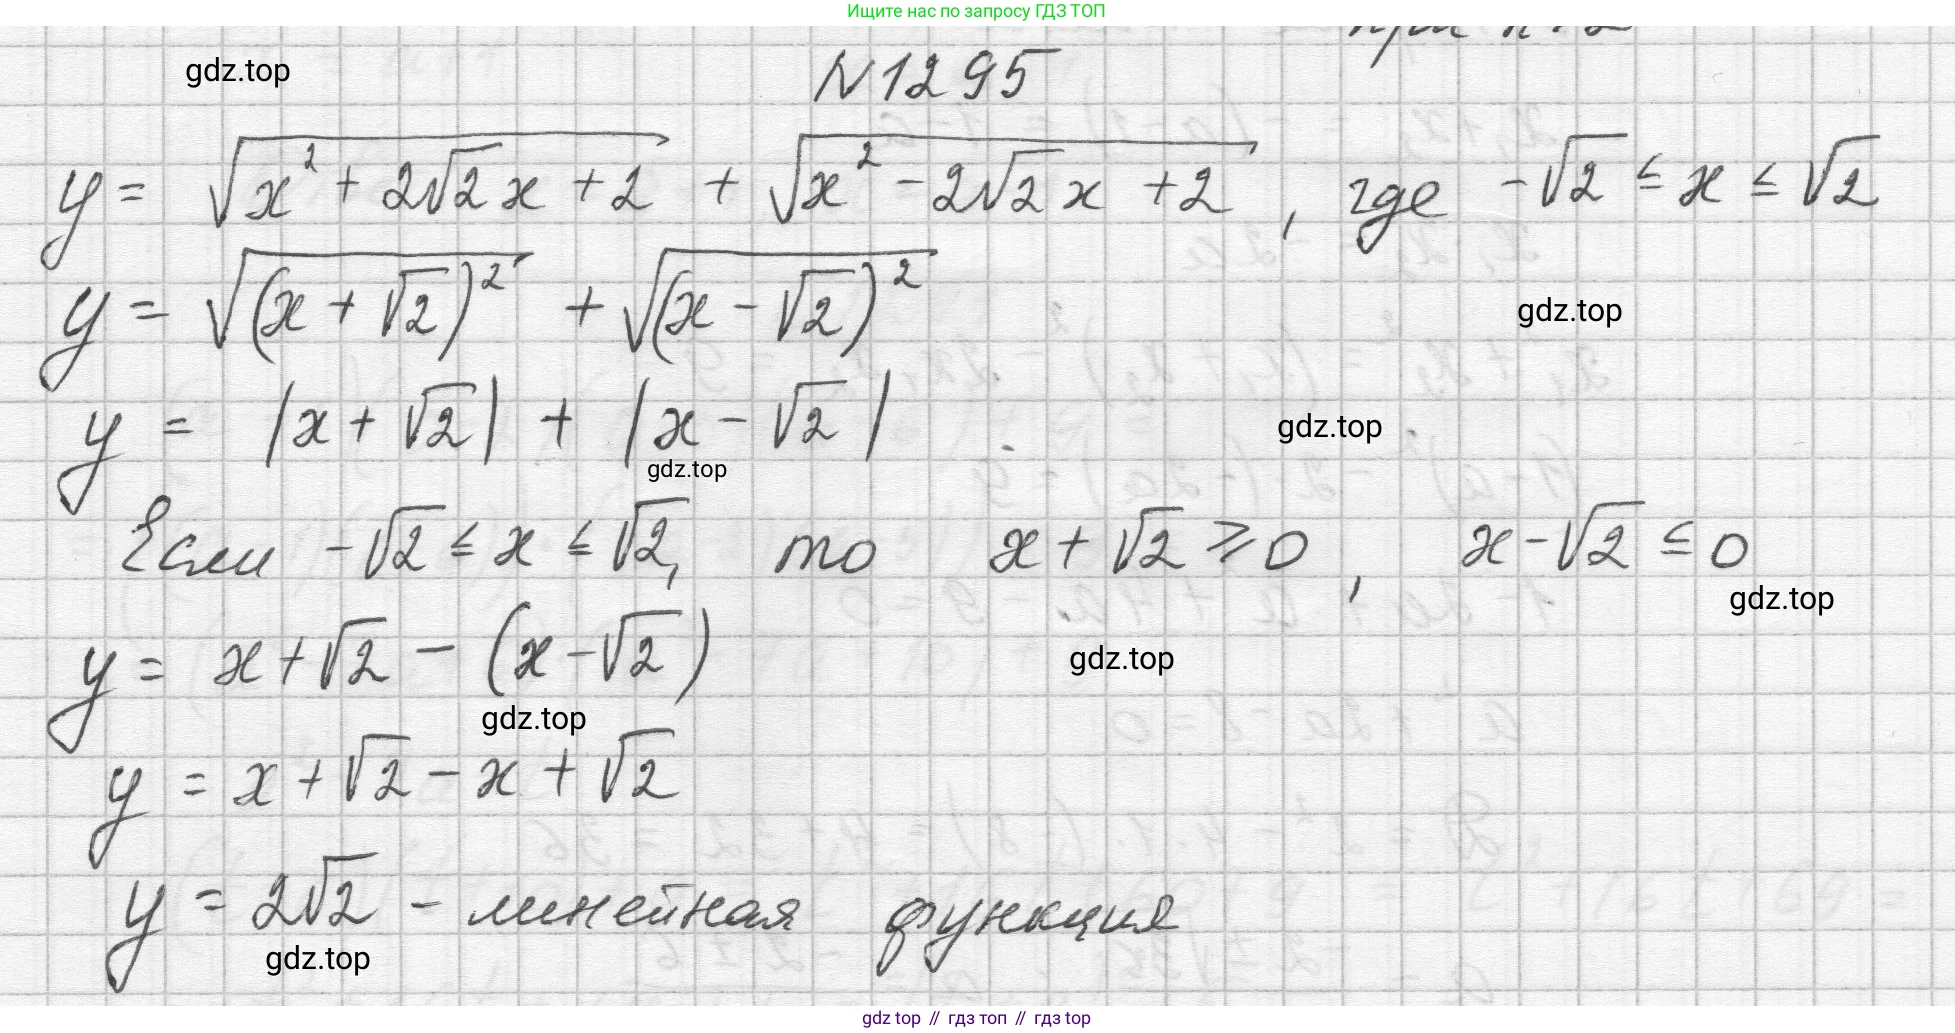 Ищите нас по запросу ГДЗ ТОП
gdz.top
N1295
y = √(x² + 2√2x + 2) + √(x² - 2√2x + 2), где -√2 ≤ x ≤ √2
y = √((x + √2)²) + √((x - √2)²)
gdz.top
y = |x + √2| + |x - √2|
gdz.top
gdz.top
Если -√2 ≤ x ≤ √2, то x + √2 ⩾ 0, x - √2 ≤ 0
gdz.top
y = x + √2 - (x - √2)
gdz.top
gdz.top
y = x + √2 - x + √2
y = 2√2 - линейная функция
gdz.top
gdz top // гдз топ // гдз top